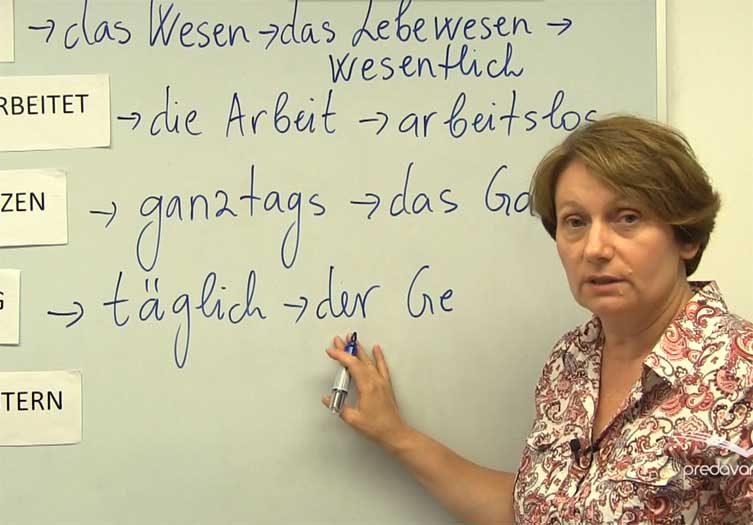 → das Wesen → das Lebewesen →
wesentlich
RBEITET → die Arbeit → arbeitslos
ZEN → ganztags → das Ga
G → täglich → der Ge
TERN
predavan